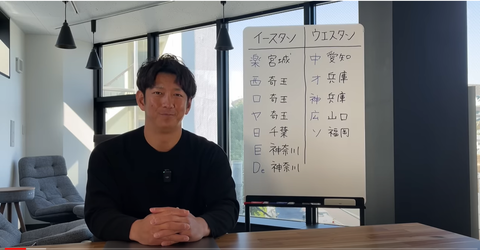 イースタン ウエスタン
楽 宮城 中 愛知
西 奇王 オ 兵庫
ロ 奇王 神 兵庫
ヤ 奇王 広 山口
日 千葉 ソ 福岡
巨 神奈川
De 神奈川